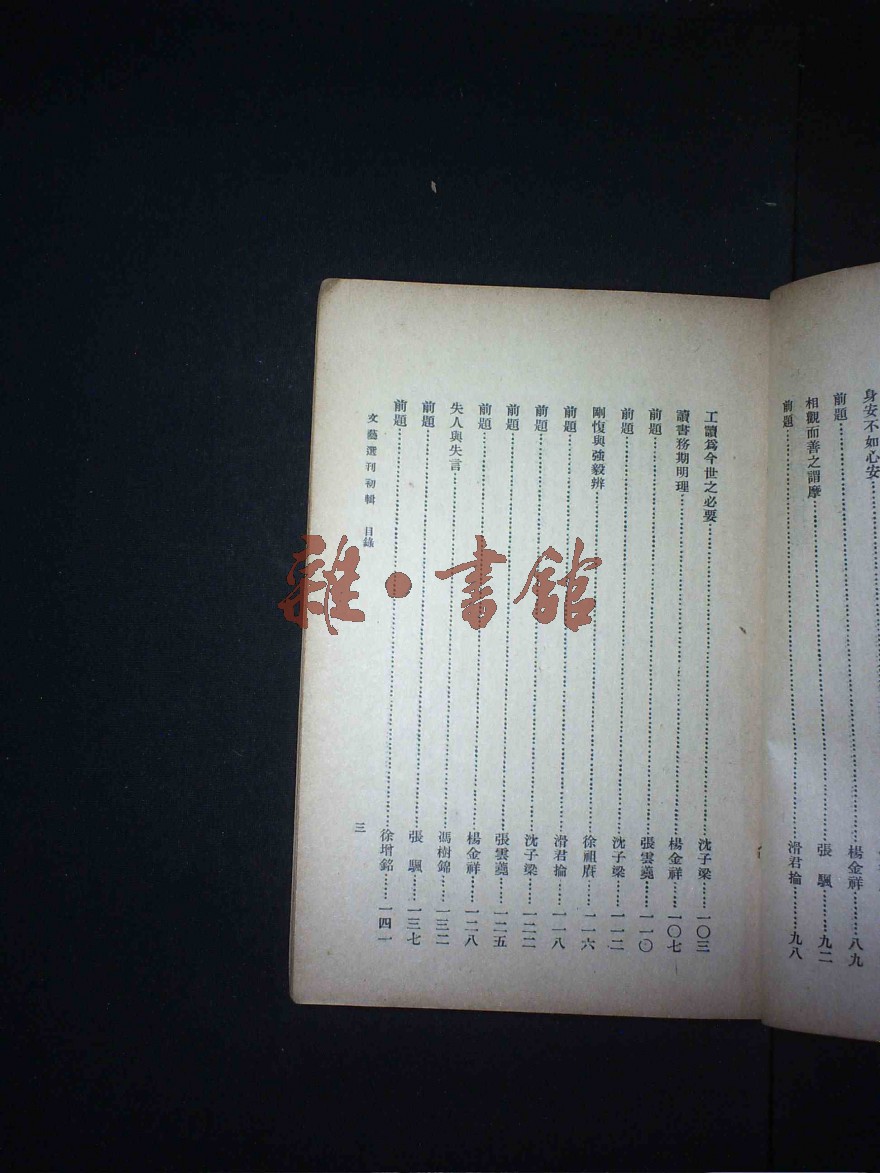 身安不如心安
前題⋯⋯楊金祥⋯⋯八九
相觀而善之謂摩⋯⋯張　颿⋯⋯九二
前題⋯⋯滑君掄⋯⋯九八
工讀爲今世之必要⋯⋯沈子梁⋯⋯一〇三
讀書務期明理⋯⋯楊金祥⋯⋯一〇七
前題⋯⋯張雲⋯⋯一一〇
前題⋯⋯沈子梁⋯⋯一一二
剛愎與強毅辨⋯⋯徐祖⋯⋯一一六
前題⋯⋯滑君掄⋯⋯一一八
前題⋯⋯沈子梁⋯⋯一二二
前題⋯⋯張雲⋯⋯一二五
前題⋯⋯楊金祥⋯⋯一二八
失人與失言⋯⋯馮樹錦⋯⋯一三二
前題⋯⋯張　颿⋯⋯一三七
前題⋯⋯徐增銘⋯⋯一四一
文藝選刊初輯　目錄
三
雜·書館